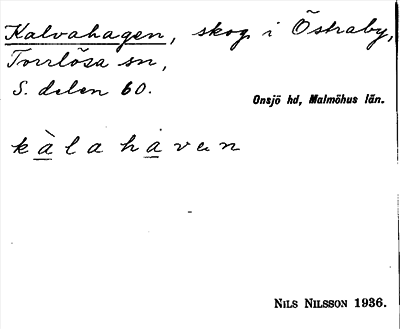 Kalvahagen, skog i Östraby,
Torrlösa sn,
S. delen 60.
Onsjö hd, Malmöhus län.
kàlahaven
NILS NILSSON 1936.